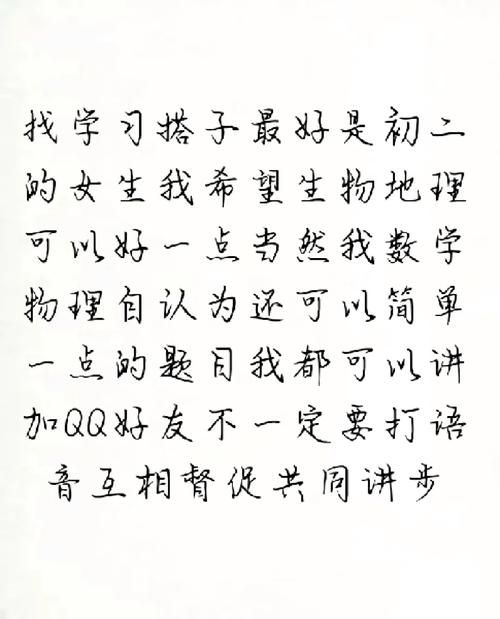 找学习搭子最好是初二
的女生我希望生物地理
可以好一点当然我数学
物理自认为还可以简单
一点的题目我都可以讲
加QQ好友不一定要打语
音互相督促共同讲步